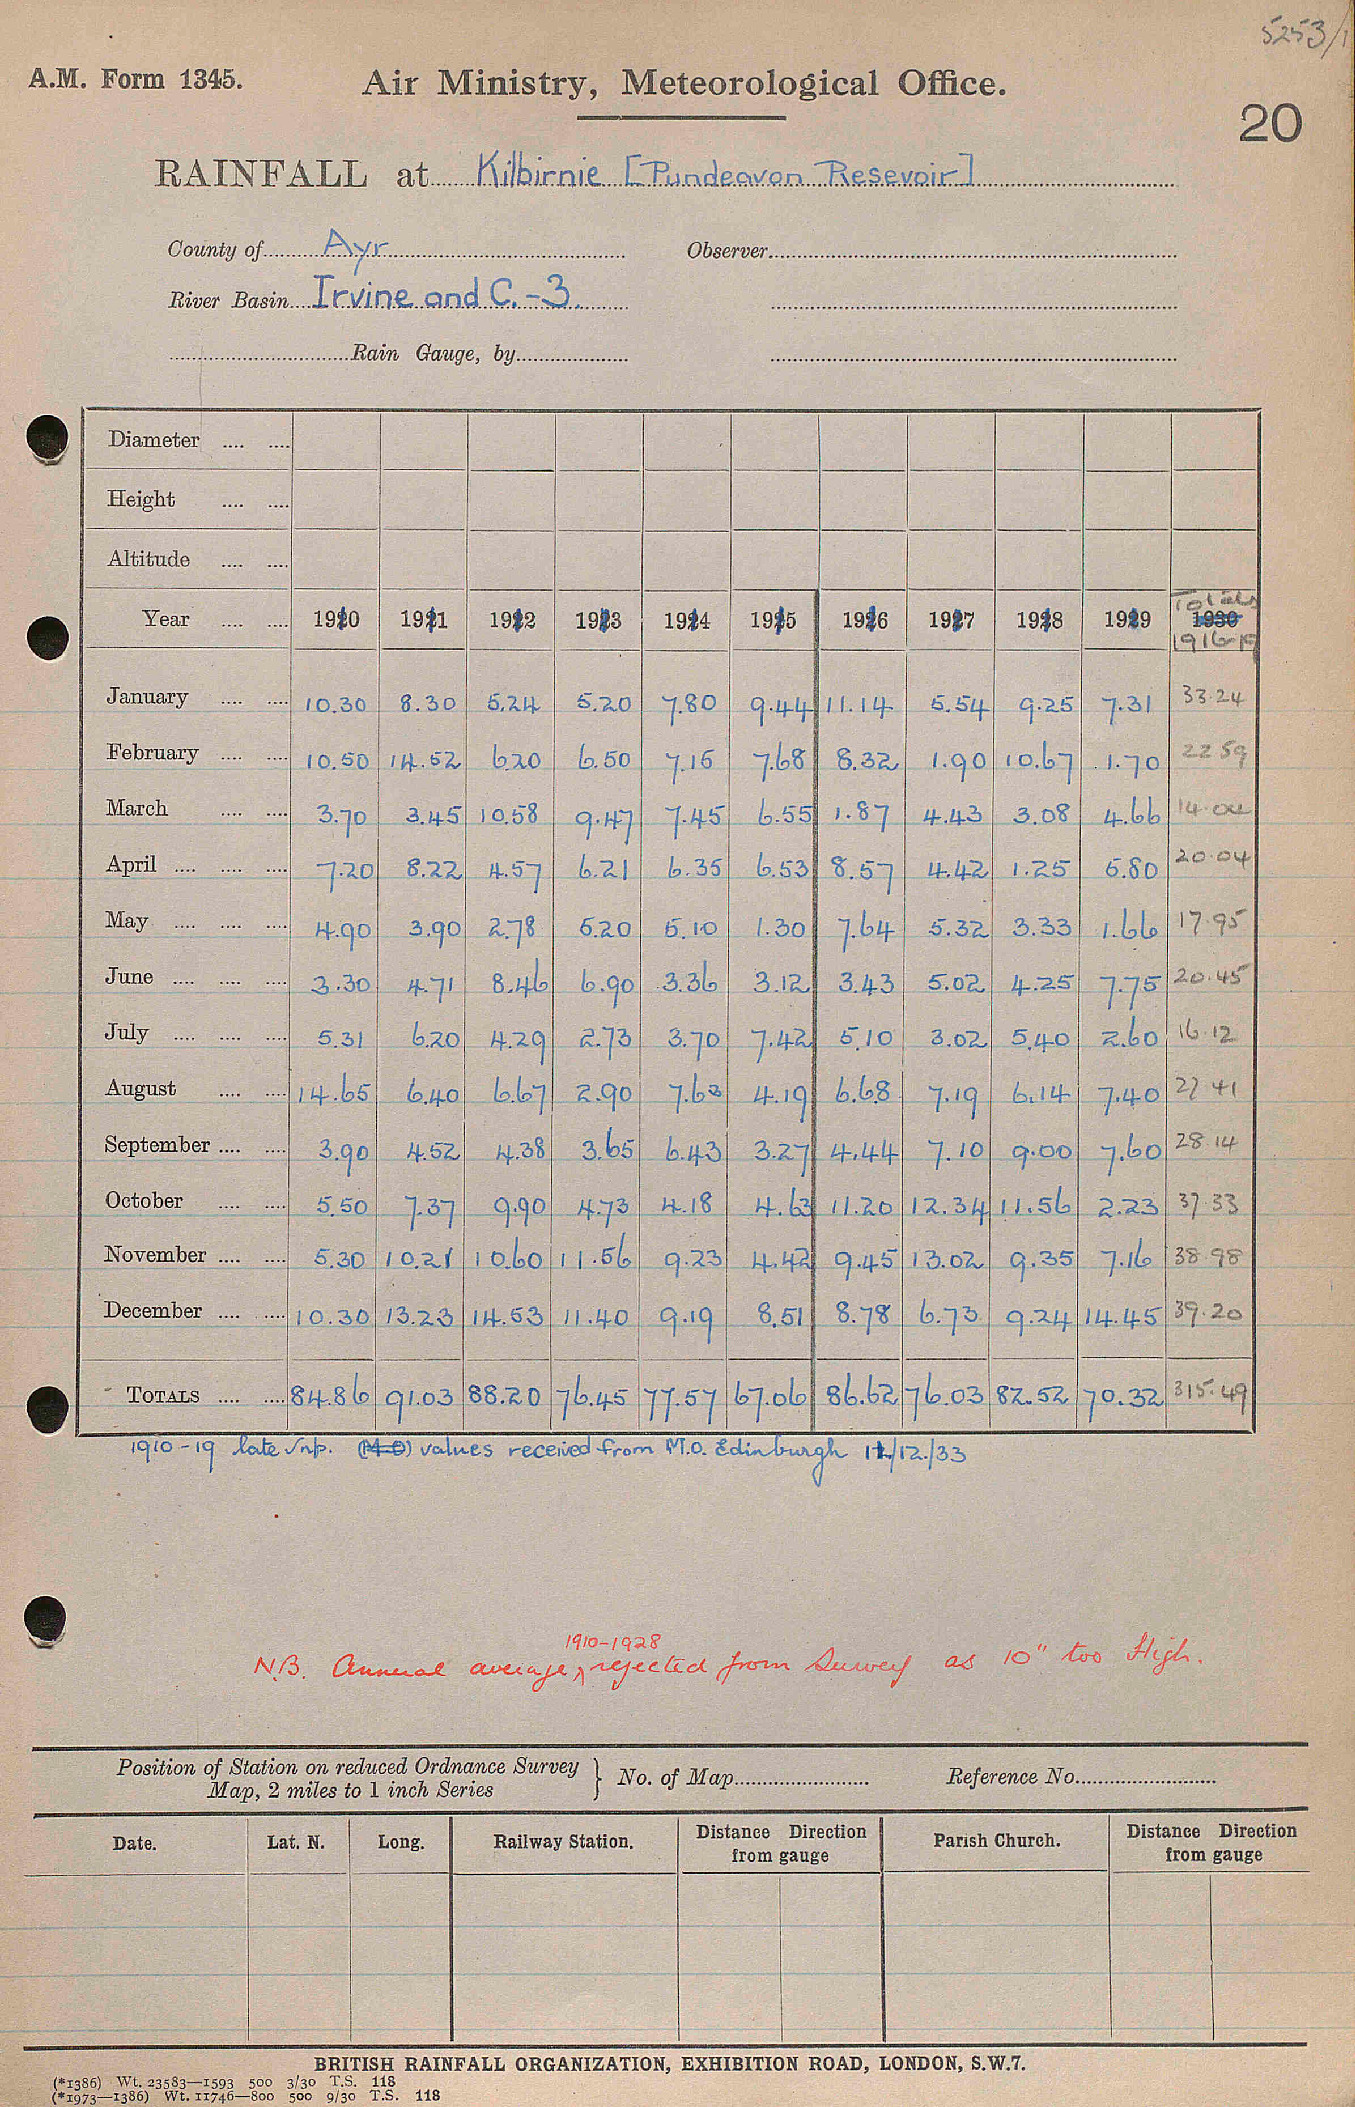 5253/1
A.M. Form 1345.
Air Ministry, Meteorological Office.
20
RAINFALL at Kilbirnie [Pundeavon Resevoir]
County of Ayr Observer
River Basin Irvine and C. -3.
Rain Gauge, by
Diameter
Height
Altitude
Year 1910 1911 1912 1913 1914 1915 1916 1917 1918 1919 Totals 1930 1916-19
January 10.30 8.30 5.24 5.20 7.80 9.44 11.14 5.54 9.25 7.31 33.24
February 10.50 14.52 6.20 6.50 7.15 7.68 8.32 1.90 10.67 1.70 22 59
March 3.70 3.45 10.58 9.47 7.45 6.55 1.87 4.43 3.08 4.66 14.04
April 7.20 8.22 4.57 6.21 6.35 6.53 8.57 4.42 1.25 5.80 20.04
May 4.90 3.90 2.78 5.20 5.10 1.30 7.64 5.32 3.33 1.66 17.95
June 3.30 4.71 8.46 6.90 3.36 3.12 3.43 5.02 4.25 7.75 20.45
July 5.31 6.20 4.29 2.73 3.70 7.42 5.10 3.02 5.40 2.60 16.12
August 14.65 6.40 6.67 2.90 7.63 4.19 6.68 7.19 6.14 7.40 27 41
September 3.90 4.52 4.38 3.65 6.43 3.27 4.44 7.10 9.00 7.60 28.14
October 5.50 7.37 9.90 4.73 4.18 4.63 11.20 12.34 11.56 2.23 37.33
November 5.30 10.21 10.60 11.56 9.23 4.42 9.45 13.02 9.35 7.16 38.98
December 10.30 13.23 14.53 11.40 9.19 8.51 8.78 6.73 9.24 14.45 39.20
TOTALS 84.86 91.03 88.20 76.45 77.57 67.06 86.62 76.03 82.52 70.32 315.49
1910-19 late values received from M.O. Edinburgh /12./33
1910-1928
N.B. Annual average, rejected from Survey as 10" too High.
Position of Station on reduced Ordnance Survey
Map, 2 miles to 1 inch Series } No. of Map Reference No.
Date. Lat. N. Long. Railway Station. Distance Direction from gauge Parish Church. Distance Direction from gauge
BRITISH RAINFALL ORGANIZATION, EXHIBITION ROAD, LONDON, S.W.7.
(*1386) Wt. 23583—1593 500 3/30 T.S. 118
(*1973—1386) Wt. 11746—800 500 9/30 T.S. 118